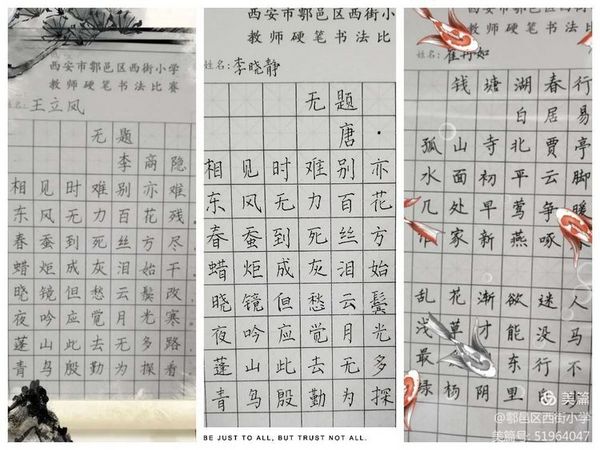 西安市鄠邑区西街小学
教师硬笔书法比赛
姓名:王立凤
无题
李商隐
相见时难别亦难
东风无力百花残
春蚕到死丝方尽
蜡炬成灰泪始干
晓镜但愁云鬓改
夜吟应觉月光寒
蓬山此去无多路
青鸟殷勤为探看
西安市鄠邑区西街小
教师硬笔书法比
姓名:李晓静
无题
唐·
相见时难别亦
东风无力百花
春蚕到死丝方
蜡炬成灰泪始
晓镜但愁云鬓
夜吟应觉月光
蓬山此去无多
青鸟殷勤为探
BE JUST TO ALL, BUT TRUST NOT ALL.
西安市鄠邑区西街小
教师硬笔书法比
姓名:崔
钱塘湖春行
白居易
孤山寺北贾亭
水面初平云脚
几处早莺争暖
家新燕啄
乱花渐欲迷人
浅草才能没马
最 东行不
绿杨阴里
美篇
@鄠邑区西街小学
美篇号: 51964047